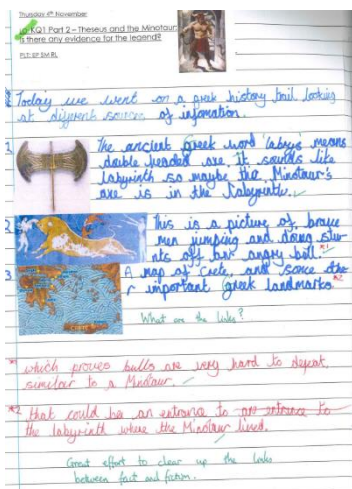 Thursday 4th November
LO-KQ1 Part 2 – Theseus and the Minotaur:
Is there any evidence for the legend?
PLT: EP SM RL
Today we went on a greek history trail looking
at diferent sources of infomation.
1 The ancient greek word 'labrys' means
double headed axe, it sounds like
labyrinth so maybe the Minotaur's
axe is in the Labyrinth.
2 This is a picture of brave
men jumping and doing stu-
nts off an angry bull. *1
3 A map of Crete, and some othe-
r important Greek landmarks *2
What are the links?
*1 which proves bulls are very hard to defeat,
similair to a Minotaur.
*2 that could be an entrance to an entrance to
the labyrinth where the Minotaur lived.
Great effort to clear up the links
between fact and fiction.